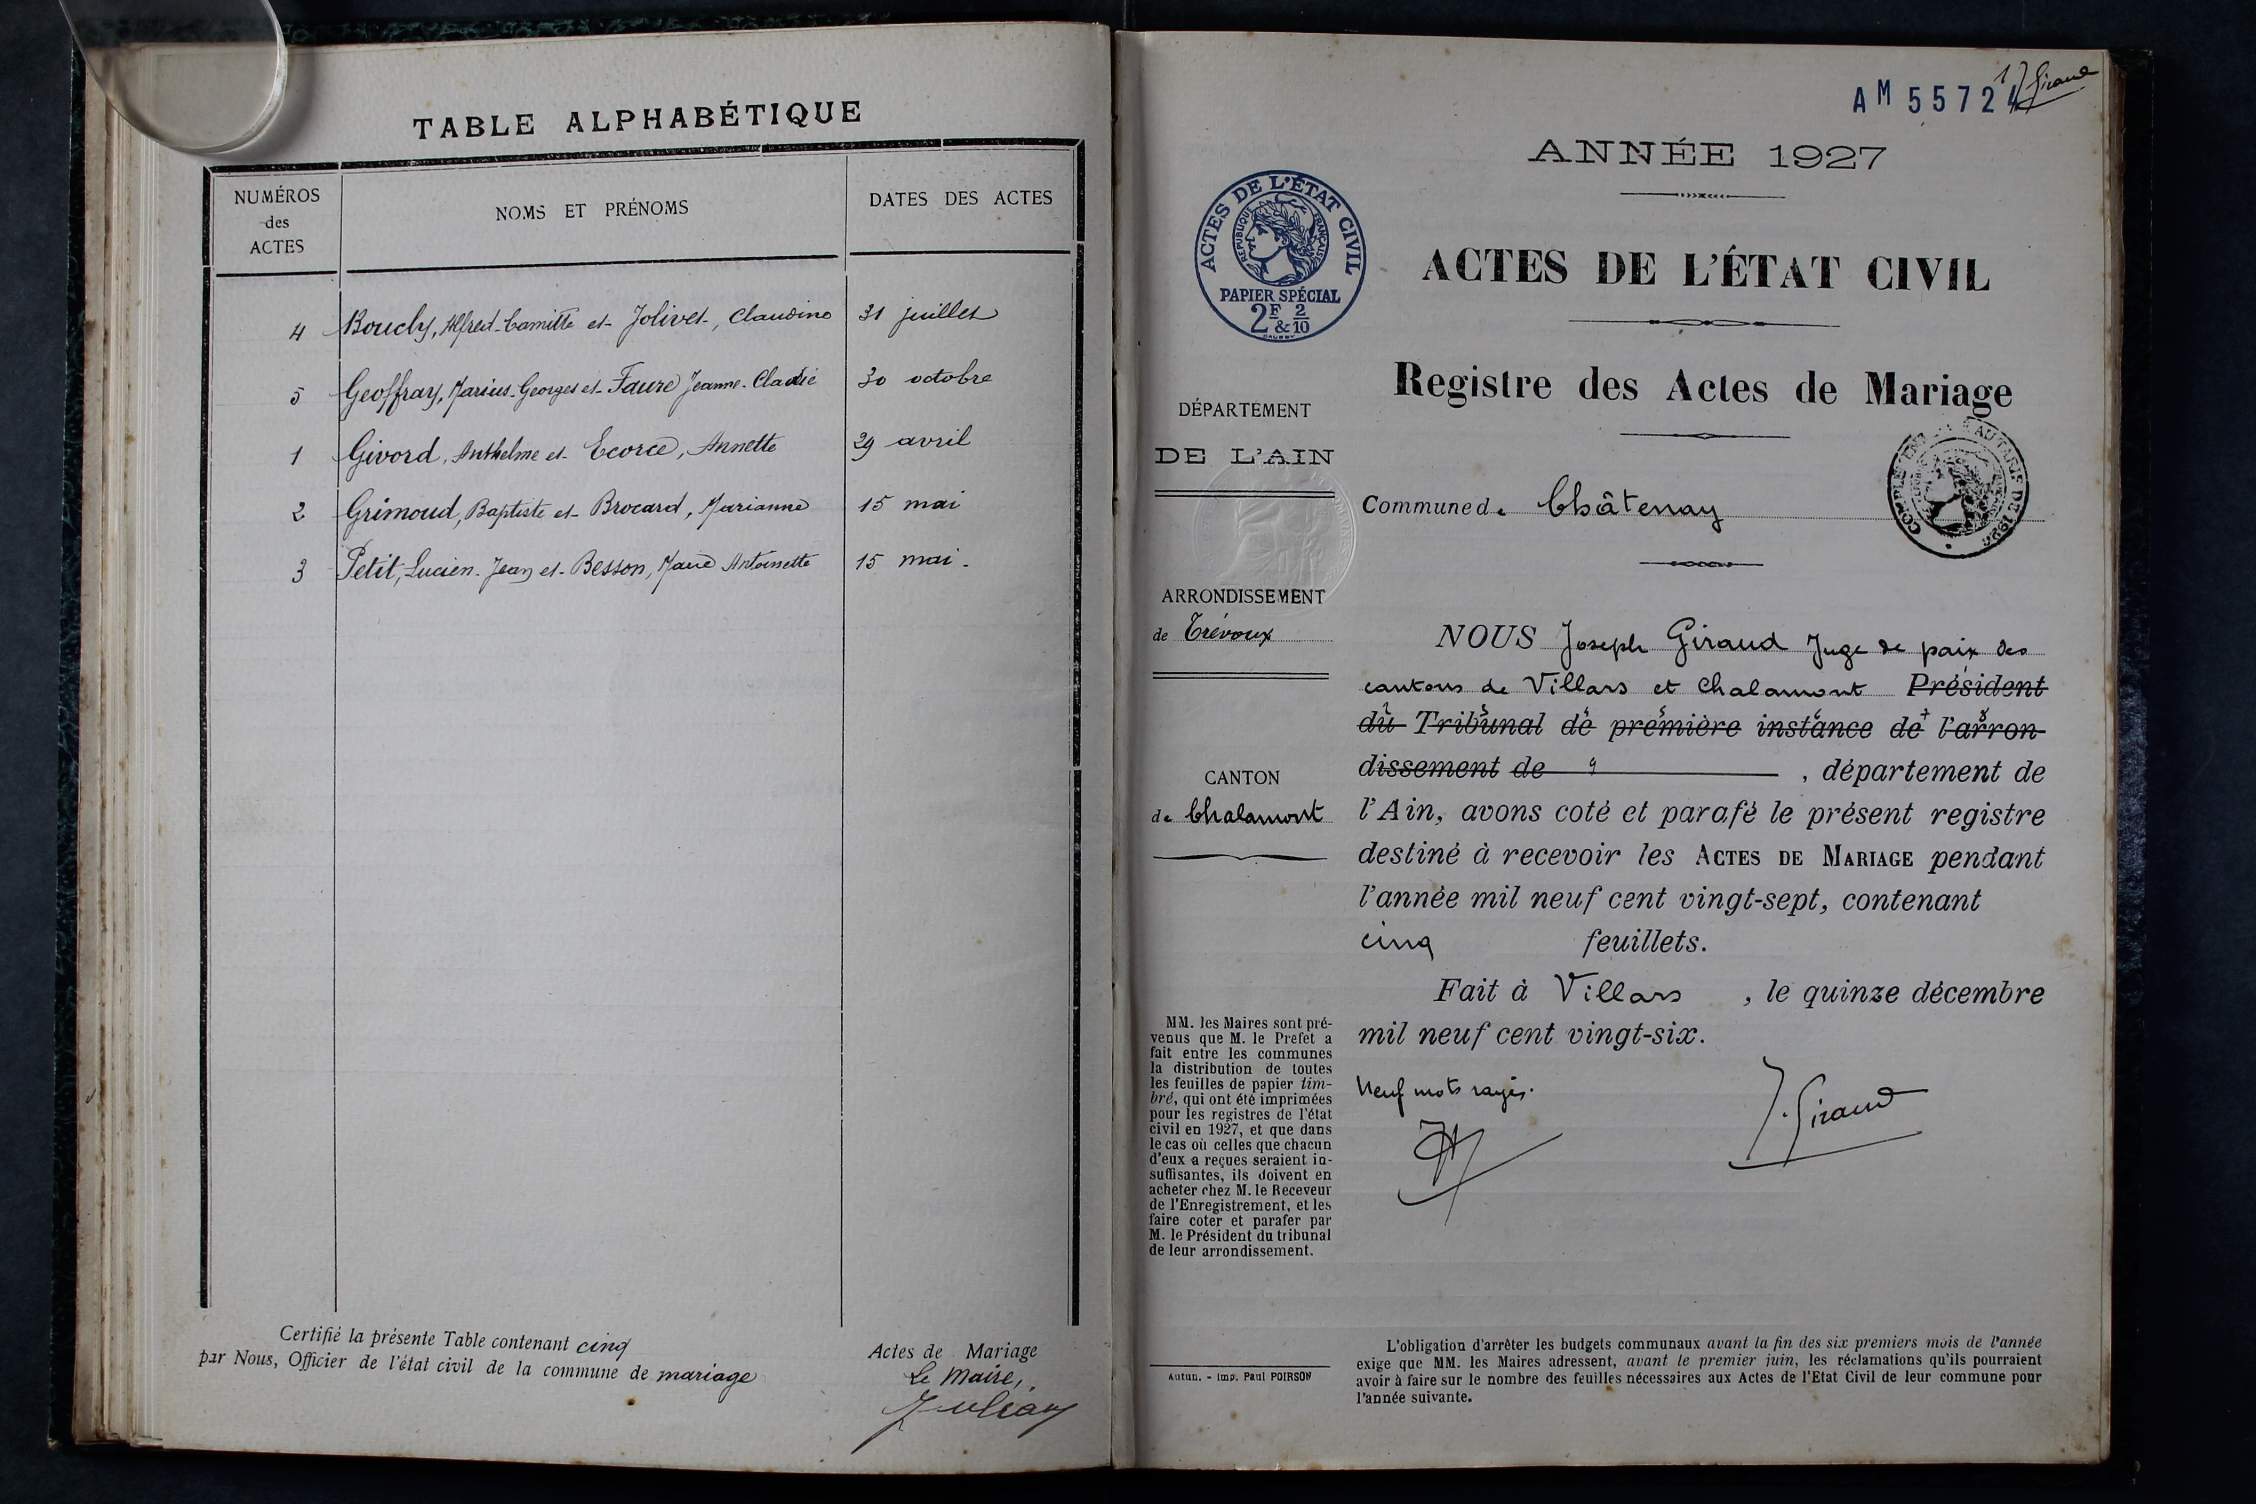 TABLE ALPHABÉTIQUE
NUMÉROS
des
ACTES
NOMS ET PRÉNOMS
DATES DES ACTES
4 Bouchy, Alfred-Camille et Jolivet, Claudine 31 juillet
5 Geoffray, Marius-Georges et Faure Jeanne-Claudie 30 octobre
1 Givord, Anthelme et Ecorce, Annette 29 avril
2 Grimoud, Baptiste et Brocard, Marianne 15 mai
3 Petit, Lucien-Jean et Besson, Marie Antoinette 15 mai.
Certifié la présente Table contenant cinq
par Nous, Officier de l'état civil de la commune de mariage
Actes de Mariage
Le Maire,
AM 55724
1 J Giraud
ANNÉE 1927
ACTES DE L'ÉTAT CIVIL
RÉPUBLIQUE FRANÇAISE
PAPIER SPÉCIAL
2F & 2/10
ACTES DE L'ÉTAT CIVIL
Registre des Actes de Mariage
DÉPARTEMENT
DE L'AIN
Commune de Châtenay
ARRONDISSEMENT
de Trévoux
CANTON
de Chalamont
NOUS Joseph Giraud Juge de paix des
cantons de Villars et Chalamont Président
du Tribunal de première instance de l'arron-
dissement de 9 , département de
l'Ain, avons coté et parafé le présent registre
destiné à recevoir les ACTES DE MARIAGE pendant
l'année mil neuf cent vingt-sept, contenant
cinq feuillets.
Fait à Villars , le quinze décembre
mil neuf cent vingt-six.
Neuf mots rayés.
J. Giraud
MM. les Maires sont pré-
venus que M. le Prefet a
fait entre les communes
la distribution de toutes
les feuilles de papier tim-
bré, qui ont été imprimées
pour les registres de l'état
civil en 1927, et que dans
le cas où celles que chacun
d'eux a reçues seraient in-
suffisantes, ils doivent en
acheter chez M. le Receveur
de l'Enregistrement, et les
faire coter et parafer par
M. le Président du tribunal
de leur arrondissement.
Autun. - Imp. Paul POIRSON
L'obligation d'arrêter les budgets communaux avant la fin des six premiers mois de l'année
exige que MM. les Maires adressent, avant le premier juin, les réclamations qu'ils pourraient
avoir à faire sur le nombre des feuilles nécessaires aux Actes de l'Etat Civil de leur commune pour
l'année suivante.